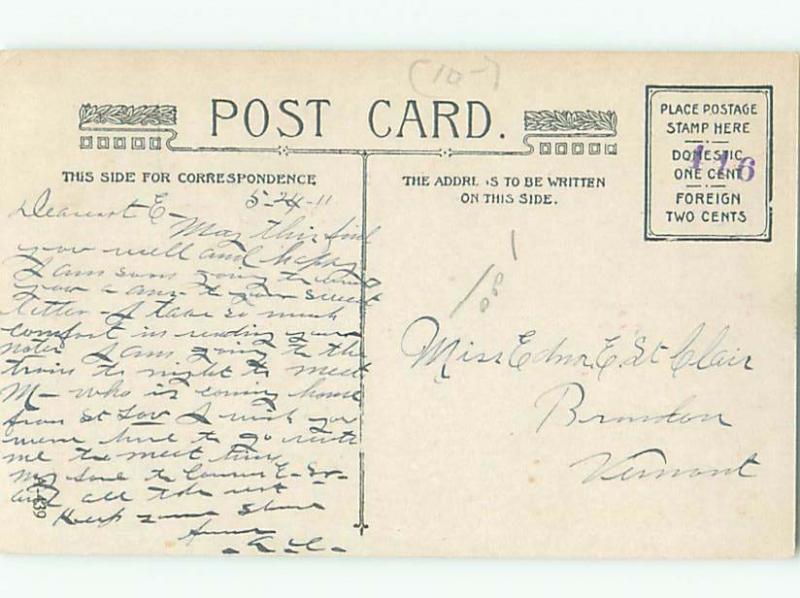 (10-)
POST CARD.
PLACE POSTAGE
STAMP HERE
DOMESTIC
ONE CENT
FOREIGN
TWO CENTS
116
THIS SIDE FOR CORRESPONDENCE
THE ADDRE S IS TO BE WRITTEN
ON THIS SIDE.
5-24-11
Dearest E-
May this find
you well and happy
I am soon going to send
you a ans. to your sweet
letter - I take so much
comfort in reading your
notes I am going to the
train to night to meet
M- who is coming home
from St Lou I wish you
were here to go with
me to meet him
My love to E-
and all the rest
Keep some
A-439
Miss Edna E. St Clair
Brandon
Vermont